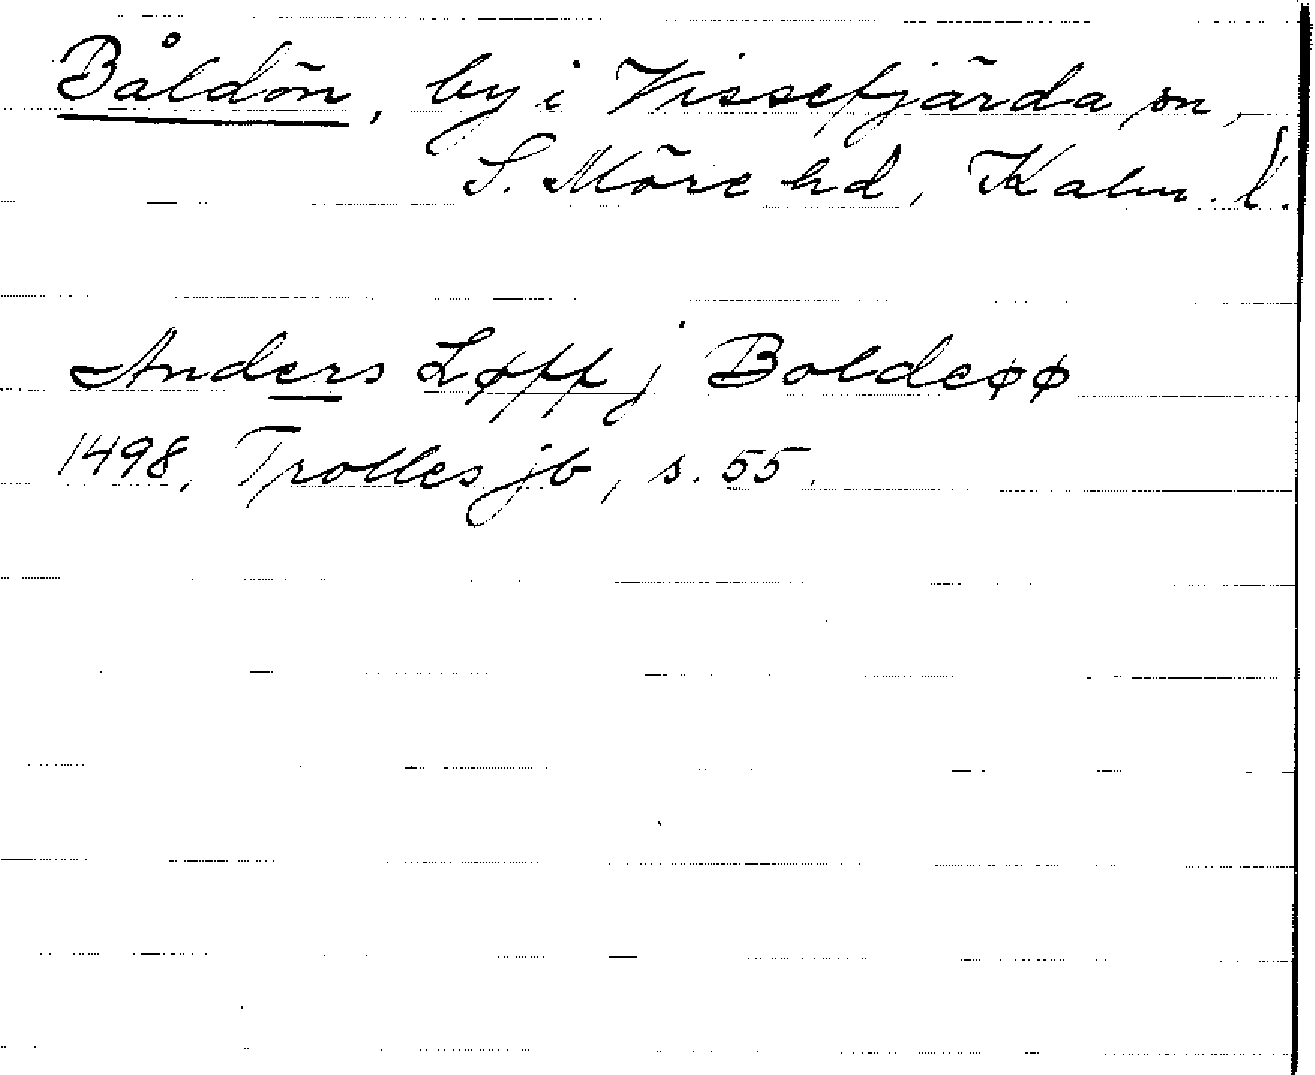 Båldön, by i Vissefjärda sn,
S. Möre hd, Kalm. l.
Anders Løpp j Boldeøø
1498. Trolles jb, s. 55.